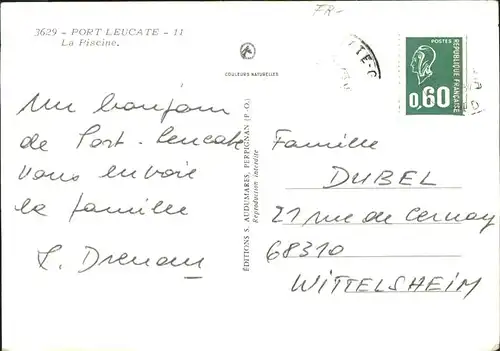 FR-
3629 - PORT LEUCATE - 11
La Piscine.
COULEURS NATURELLES
TTE-
POSTES
REPUBLIQUE FRANÇAISE
0,60
Un bonjour
de Port-Leucate
vous envoie
la famille
ÉDITIONS S. AUDUMARES, PERPIGNAN (P.-O.)
Reproduction interdite
Famille
DUBEL
21 rue de Cernay
68310
WITTELSHEIM